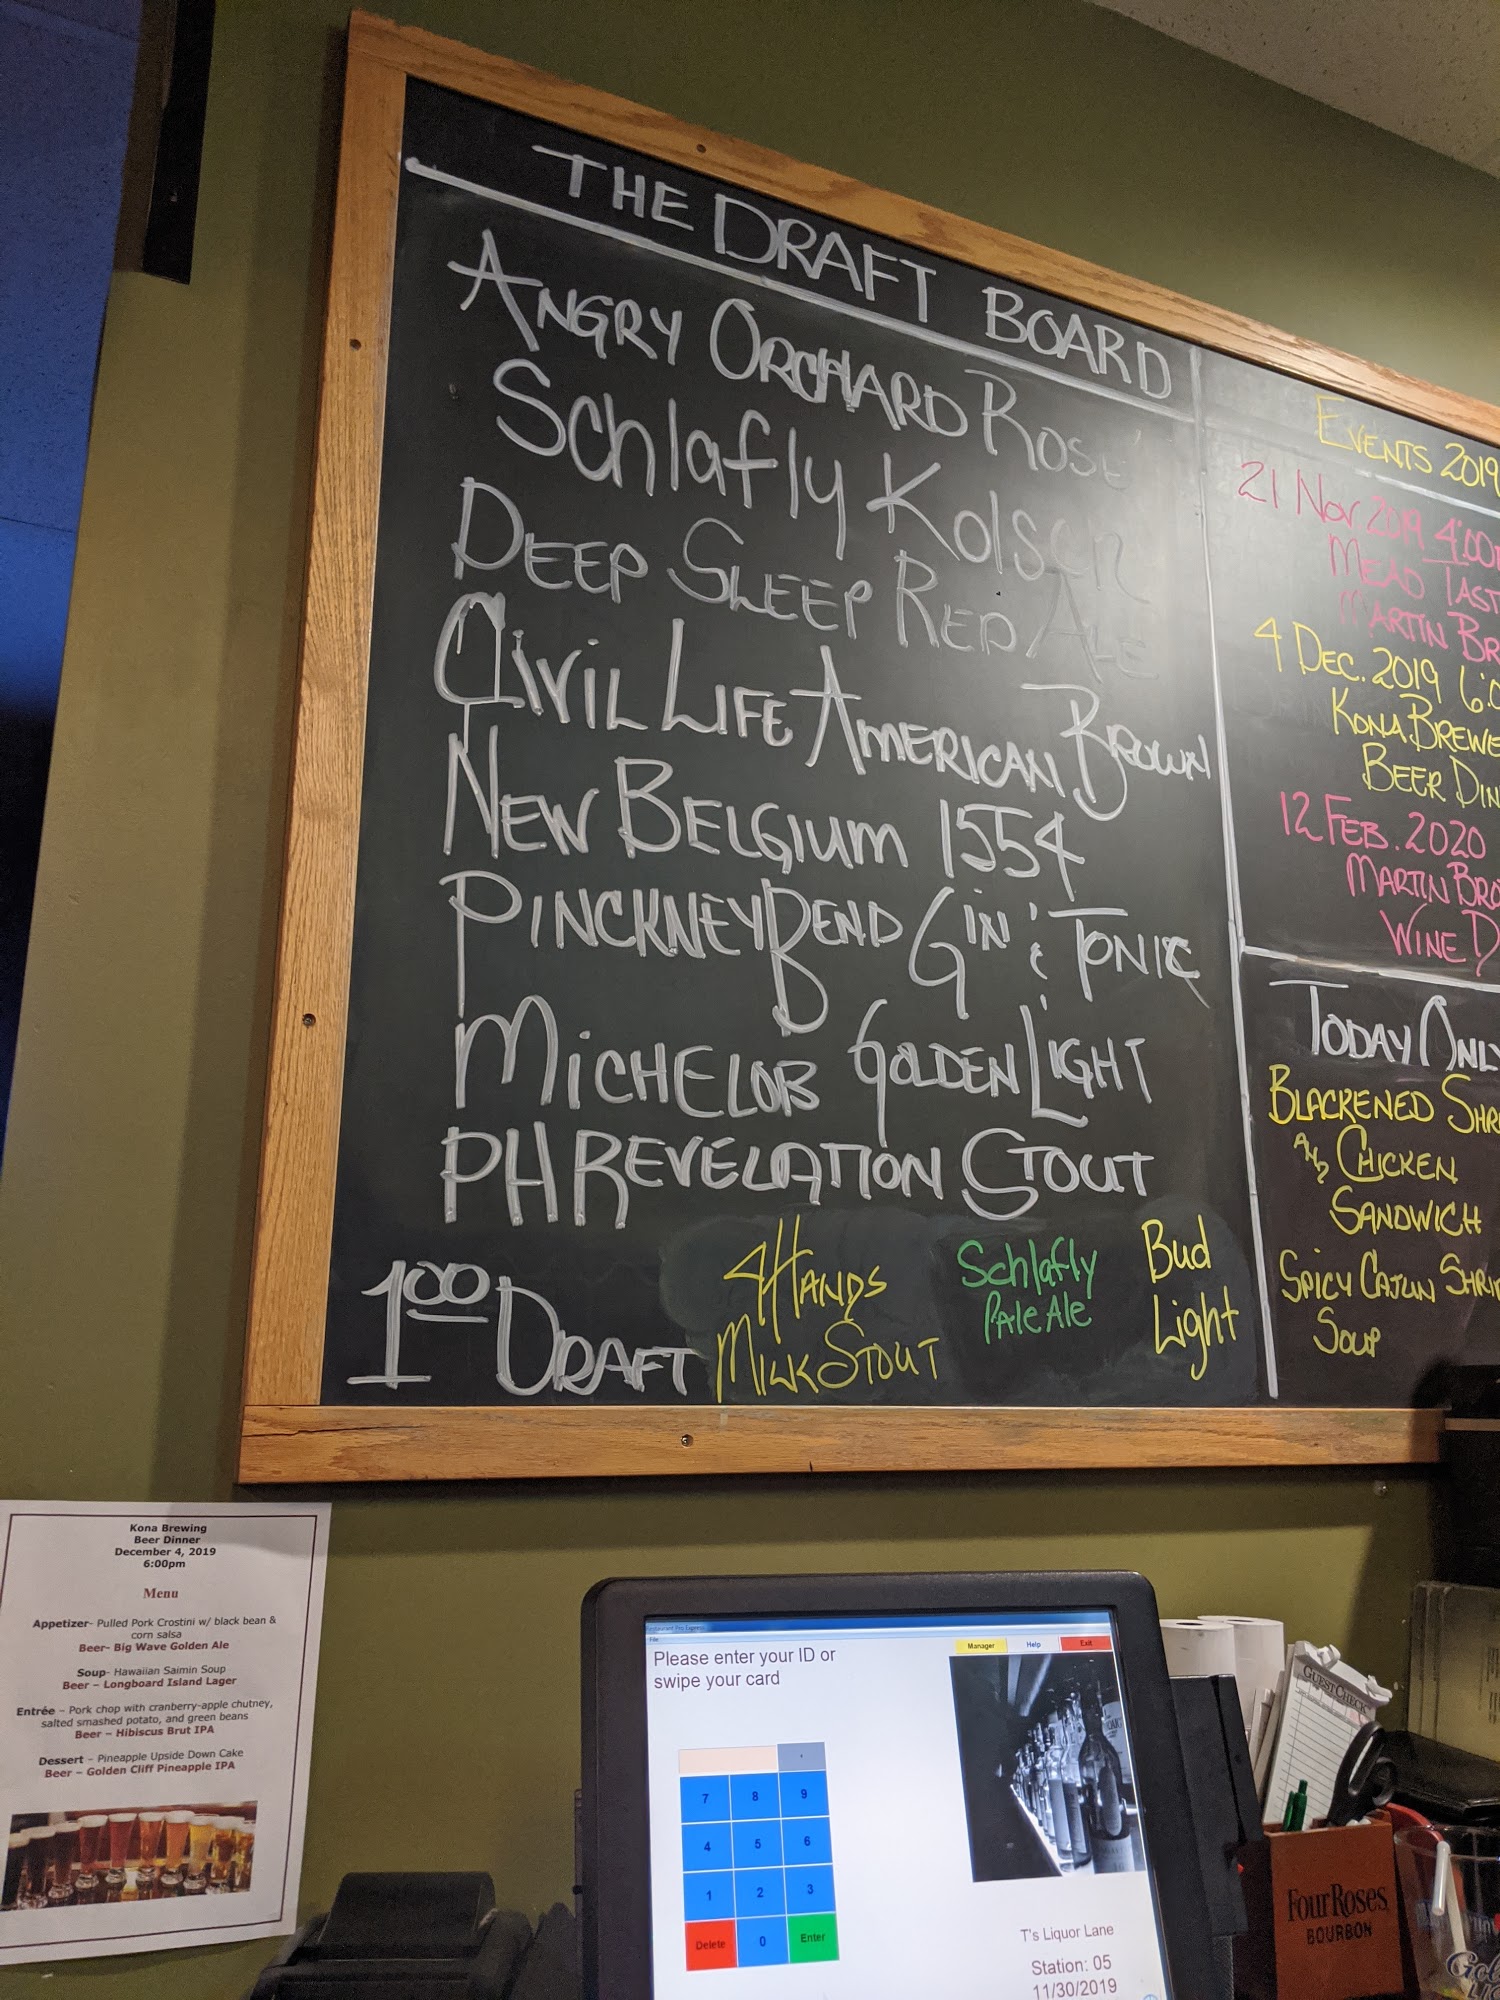 THE DRAFT BOARD
ANGRY ORCHARD ROSÉ
Schlafly Kolsch
DEEP SLEEP RED ALE
CIVIL LIFE AMERICAN BROWN
NEW BELGIUM 1554
PINCKNEY BEND GIN & TONIC
MICHELOB GOLDEN LIGHT
PH REVELATION STOUT
1.00 DRAFT
4 HANDS
MILK STOUT
Schlafly
PALE ALE
Bud
Light
EVENTS 2019
21 NOV 2019 4:00
MEAD TAST
MARTIN BR
4 DEC. 2019 6:0
KONA BREWE
BEER DIN
12 FEB. 2020
MARTIN BRO
WINE D
TODAY ONLY
BLACKENED SHR
AND CHICKEN
SANDWICH
SPICY CAJUN SHRI
SOUP
Kona Brewing
Beer Dinner
December 4, 2019
6:00pm
Menu
Appetizer- Pulled Pork Crostini w/ black bean &
corn salsa
Beer- Big Wave Golden Ale
Soup- Hawaiian Saimin Soup
Beer – Longboard Island Lager
Entrée – Pork chop with cranberry-apple chutney,
salted smashed potato, and green beans
Beer – Hibiscus Brut IPA
Dessert – Pineapple Upside Down Cake
Beer – Golden Cliff Pineapple IPA
File
Please enter your ID or
swipe your card
Manager Help Exit
7 8 9
4 5 6
1 2 3
Delete 0 Enter
T's Liquor Lane
Station: 05
11/30/2019
GUEST CHECK
Four Roses
BOURBON